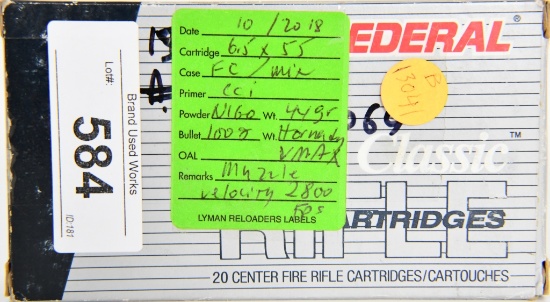 Lot#:
584
Brand Used Works
ID:181
Date 10/2018
Cartridge 6.5 x 55
Case FC/mix
Primer CCI
Powder N160 Wt. 44gr
Bullet 100gr Wt. Hornady
OAL VMAX
Remarks Muzzle
velocity 2800
FPS
LYMAN RELOADERS LABELS
FEDERAL
B
13041
069
Classic™
RIFLE
CARTRIDGES
20 CENTER FIRE RIFLE CARTRIDGES/CARTOUCHES